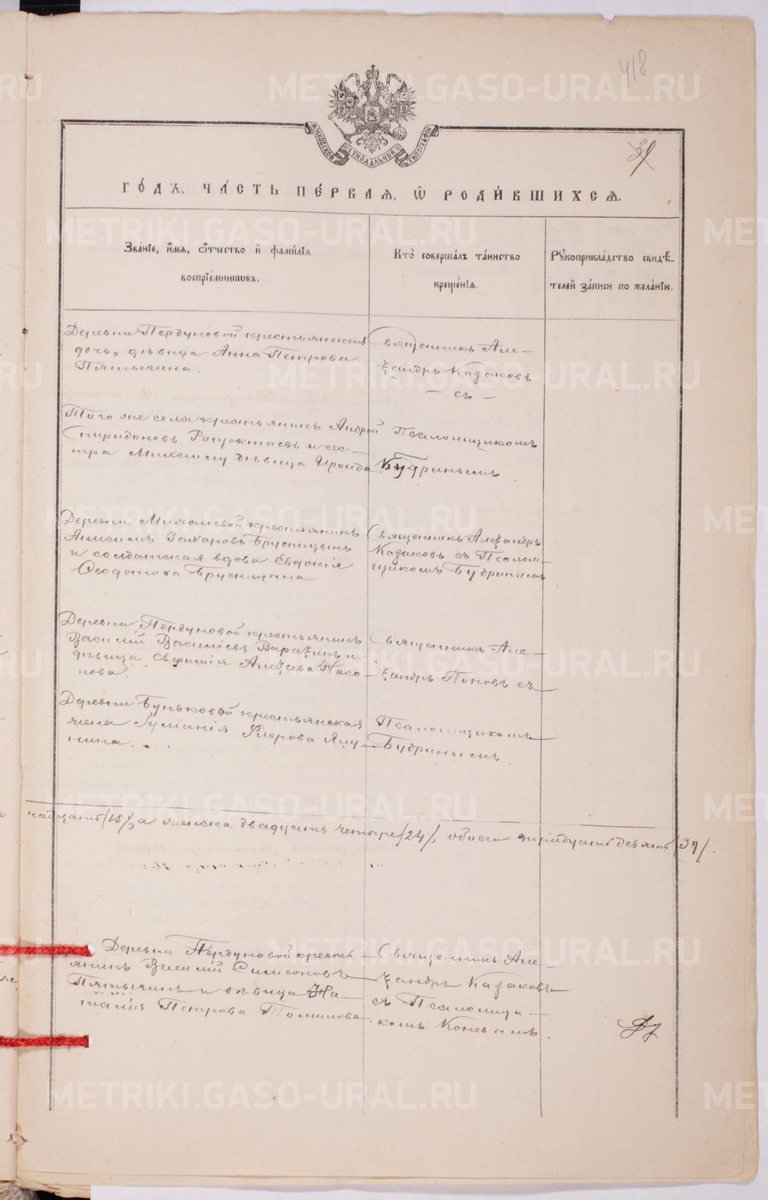 418
METRIKI.GASO-URAL.RU
МОСКОВСКОЙ СѴНОДАЛЬНОЙ ТИПОГРАФІИ
ГО́ДЪ, ЧА́СТЬ ПЕ́РВАЯ, Ѿ РОДИ́ВШИХСѦ.
Зва́нїе, и́мѧ, ѻ҆́тчество и҆ фами́лїѧ
воспрїе́мникѡвъ.
Кто̀ соверша́лъ та́инство
креще́нїѧ.
Рꙋкоприкла́дство свидѣ́-
телей за́писи по жела́нїю.
Деревни Пердуновой крестьянская
дочь, дѣвица Анна Петрова
Пятыгина.
Священникъ Але-
ѯандръ Казаковъ
— съ —
Того же села крестьянинъ Андрей
Спиридоновъ и сес-
тра дѣвица Ироида
Псаломщикомъ
Будринымъ
Деревни крестьянинъ
Захаровъ Брусницынъ
и солдатская вдова Евдокія
Ѳеодотова Брусницына
Священникъ Алеѯандръ
Казаковъ съ Псалом-
щикомъ Будринымъ
Деревни Пердуновой крестьянинъ
Василій Василіевъ Вараѯинъ и
дѣвица Алеѯѣева
нова.
Священникъ Але-
ѯандръ Поповъ съ
Деревни Буньковой крестьянская
жена Ялу-
нина.
Псаломщикомъ
Будринымъ.
надцать /15/, а женска двадцать четыре /24/, обоего тридцать девять /39/.
Деревни Пердуновой кресть-
янинъ Василій Симеоновъ
Пятыгинъ и дѣвица На-
талія Петрова Томилова
Священникъ Але-
ѯандръ Казаковъ
съ Псаломщи-
комъ